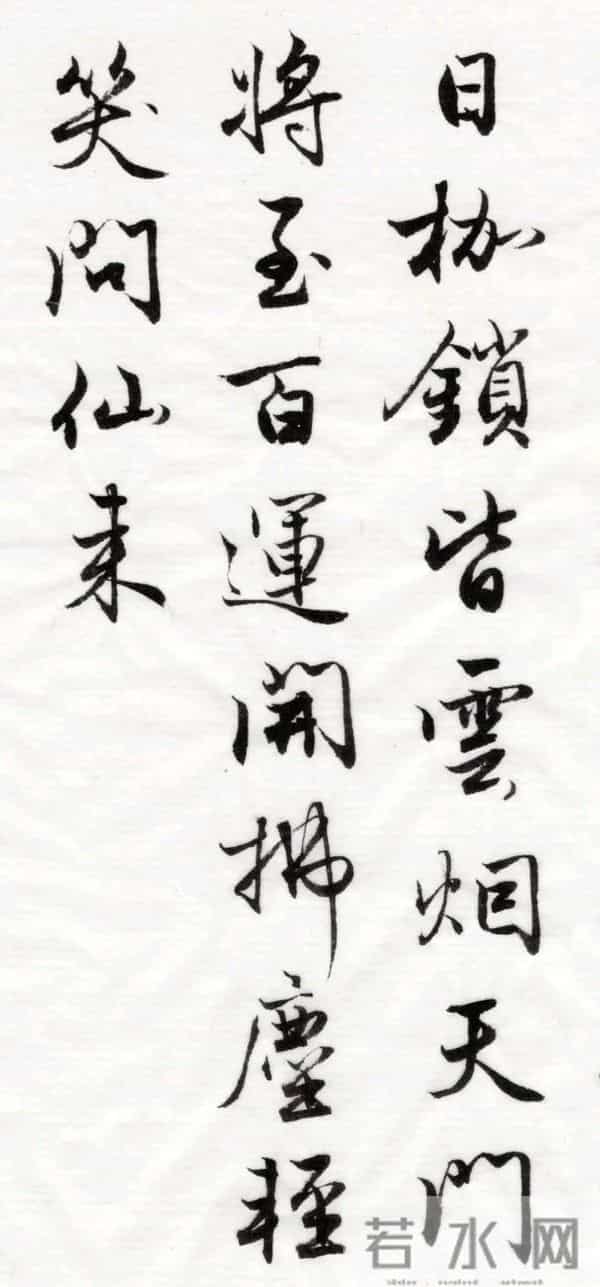 日枷鎖皆雲烟天門
將至百運開拂塵輕
笑問仙来
若水网